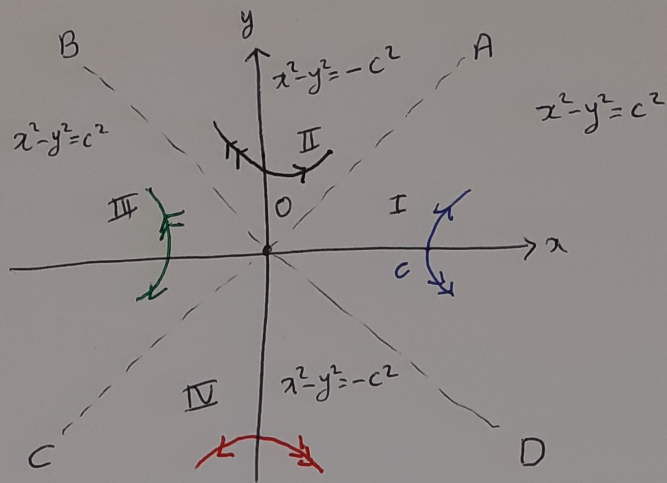 y
B
A
x²-y²=-c²
x²-y²=c²
x²-y²=c²
II
III
O
I
x
C
IV
x²-y²=-c²
C
D